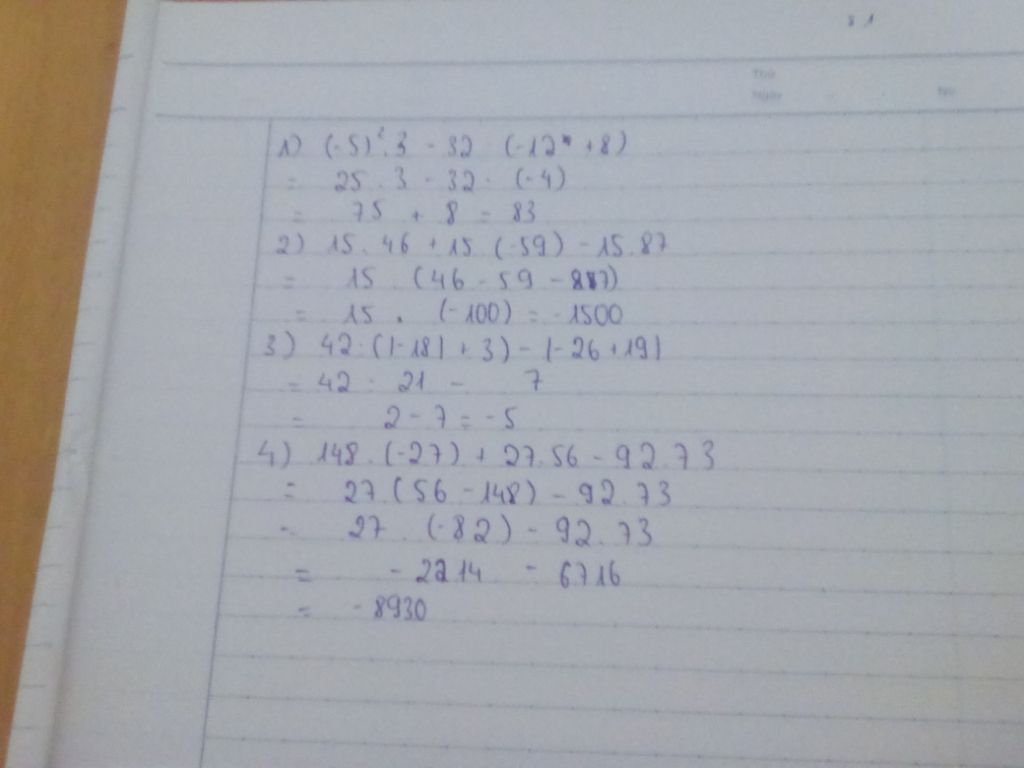 81
Thứ
Ngày
No
1) (-5)². 3 - 32 : (-12 + 8)
= 25 . 3 - 32 : (-4)
= 75 + 8 = 83
2) 15. 46 + 15 (-59) - 15. 87
= 15 . (46 - 59 - 87)
= 15 . (-100) = -1500
3) 42 : (|-18| + 3) - |-26 + 19|
= 42 : 21 - 7
= 2 - 7 = -5
4) 148. (-27) + 27. 56 - 92. 73
= 27. (56 - 148) - 92. 73
= 27 . (-82) - 92. 73
= - 2214 - 6716
= - 8930